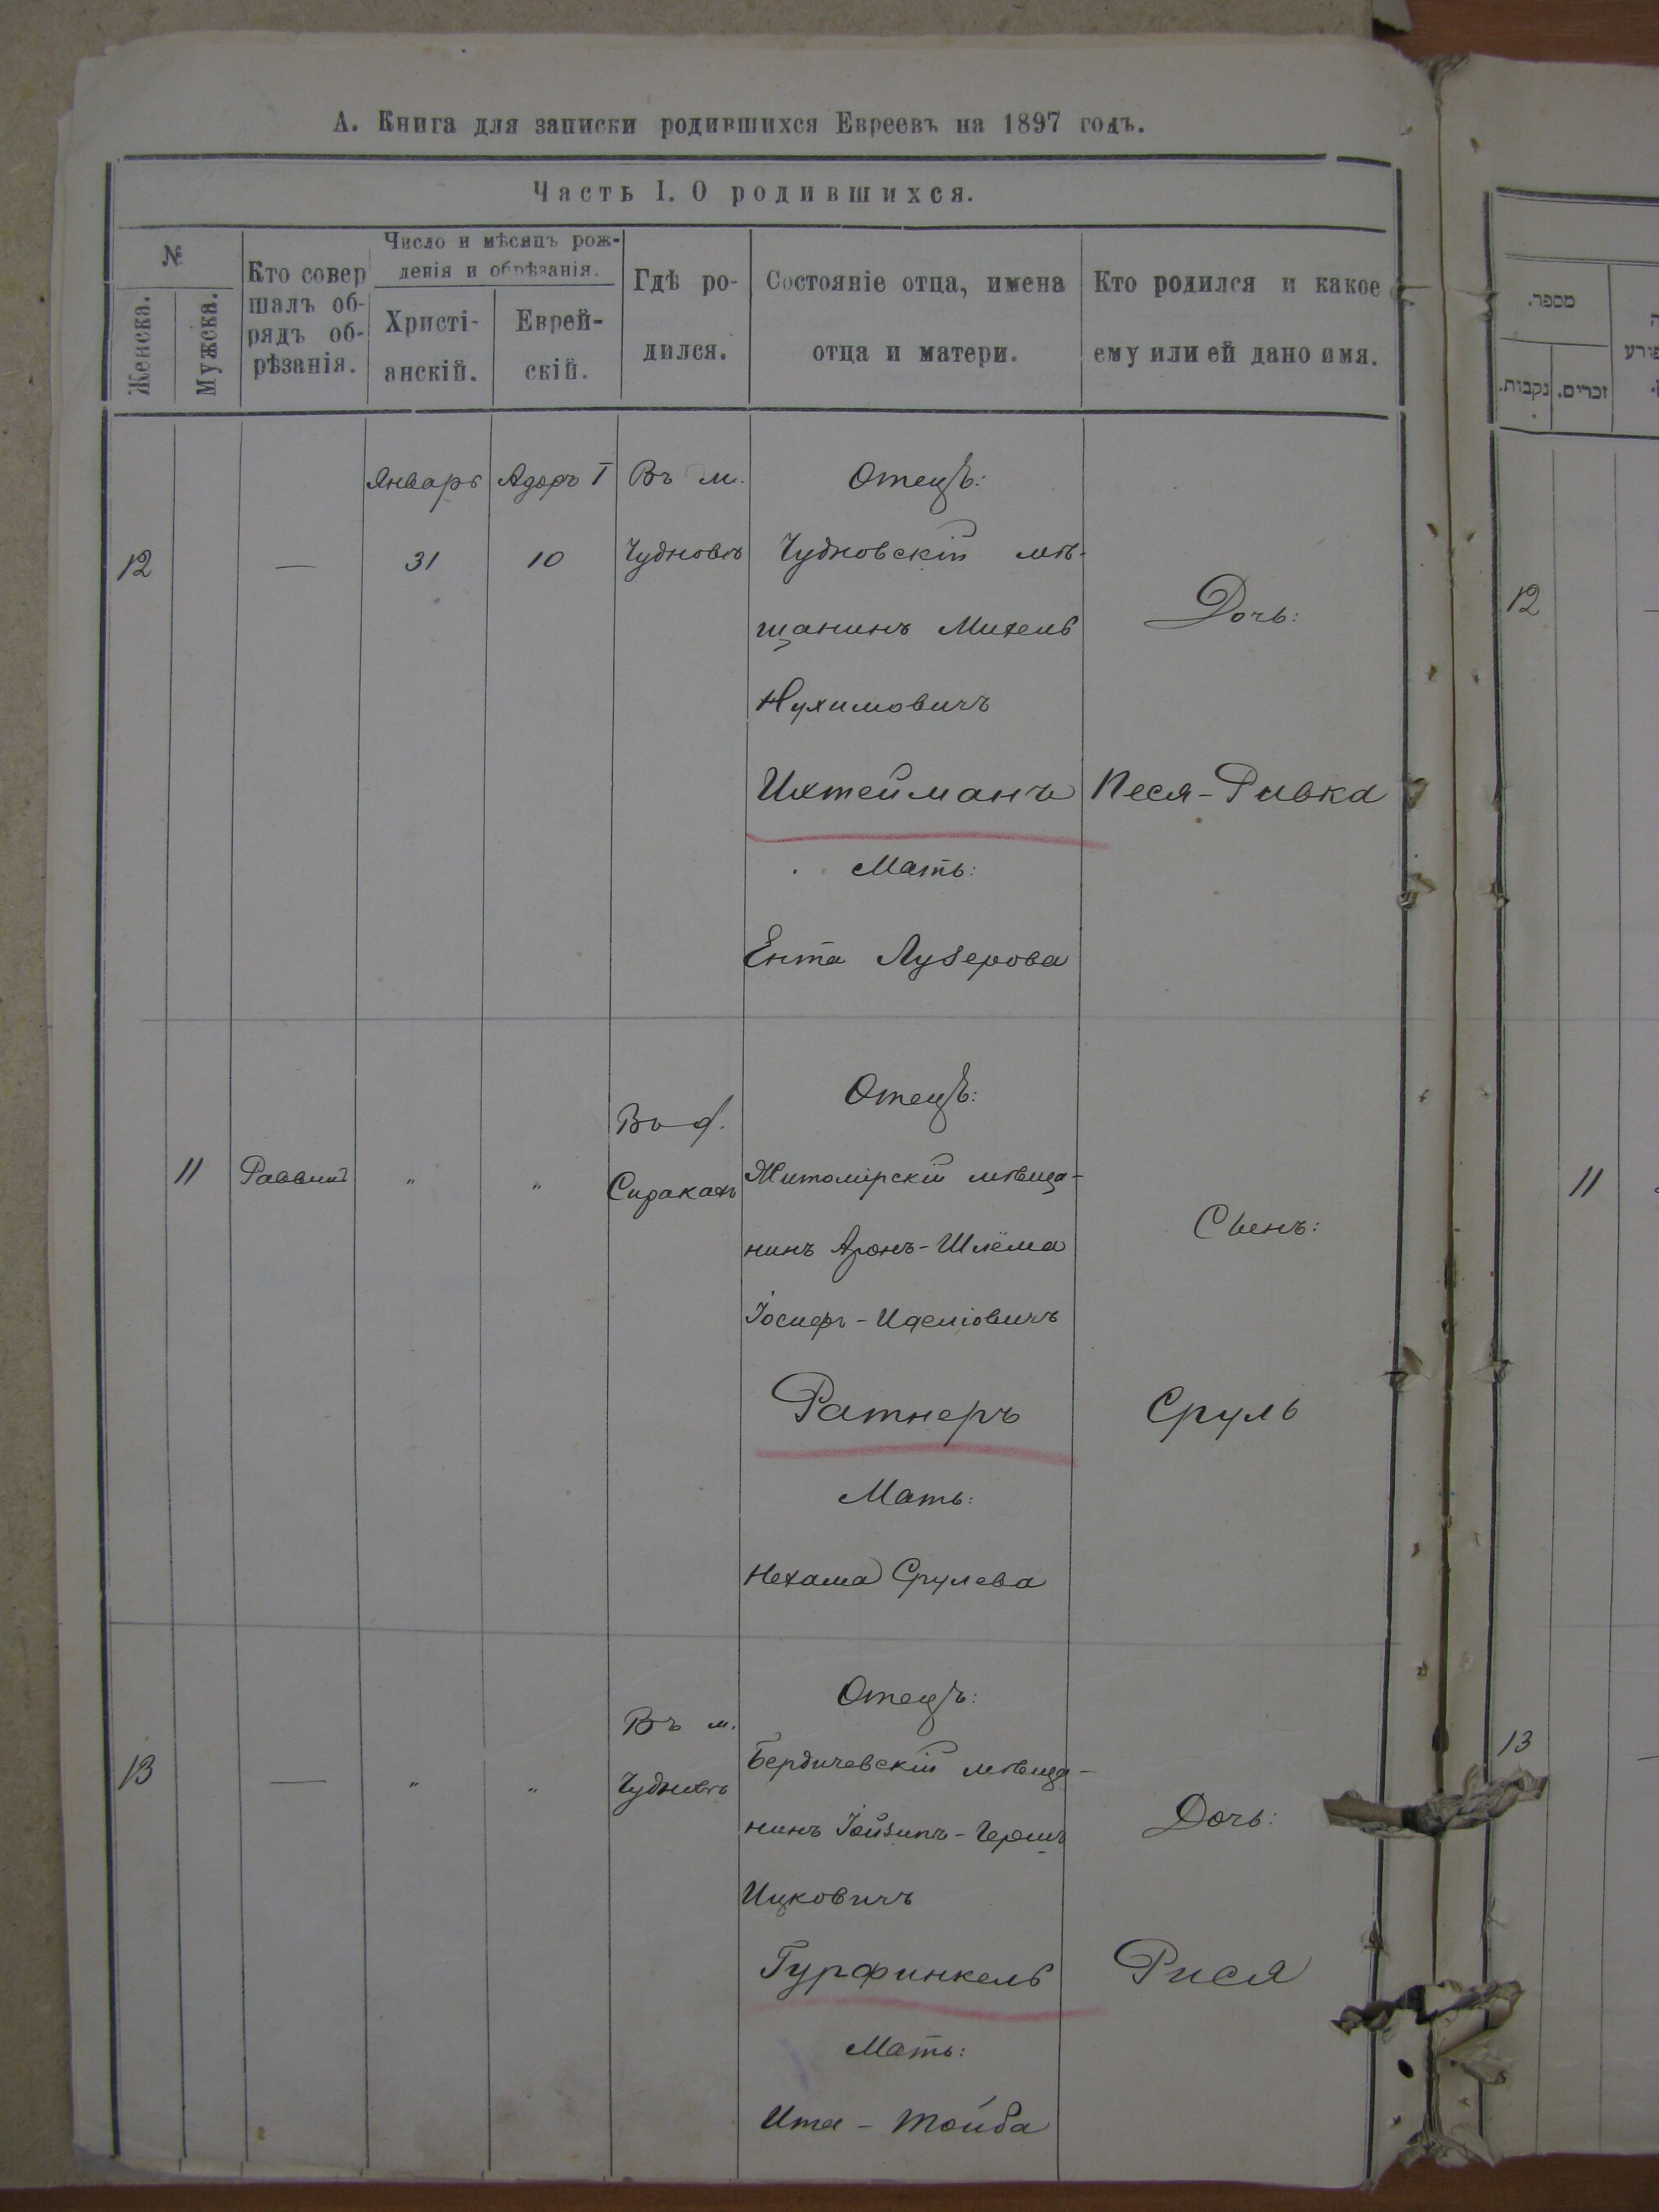 А. Книга для записки родившихся Евреевъ на 1897 годъ.
Часть I. О родившихся.
№
Женска.
Мужска.
Кто совер
шалъ об-
рядъ об-
рѣзанія.
Число и мѣсяцъ рож-
денія и обрѣзанія.
Христі-
анскій.
Еврей-
скій.
Гдѣ ро-
дился.
Состояніе отца, имена
отца и матери.
Кто родился и какое
ему или ей дано имя.
מספר.
נקבות.
זכרים.
12
—
Январь
31
Адаръ I
10
Въ м.
Чудновѣ
Отецъ:
Чудновскій мѣ-
щанинъ Михель
Нухимовичъ
Ихтейманъ
Мать:
Ента Лузерова
Дочь:
Песя-Ривка
12
11
Раввинъ
"
"
Въ
Отецъ:
Житомірскій мѣща-
нинъ Аронъ-Шлёма
Іосифъ-
Ратнеръ
Мать:
Нехама Срулева
Сынъ:
Сруль
11
13
—
"
"
Въ м.
Чудновѣ
Отецъ:
Бердичевскій мѣща-
нинъ Іойзипъ-Гершъ
Ицковичъ
Гурфинкель
Мать:
Ита-Тойба
Дочь:
Рися
13